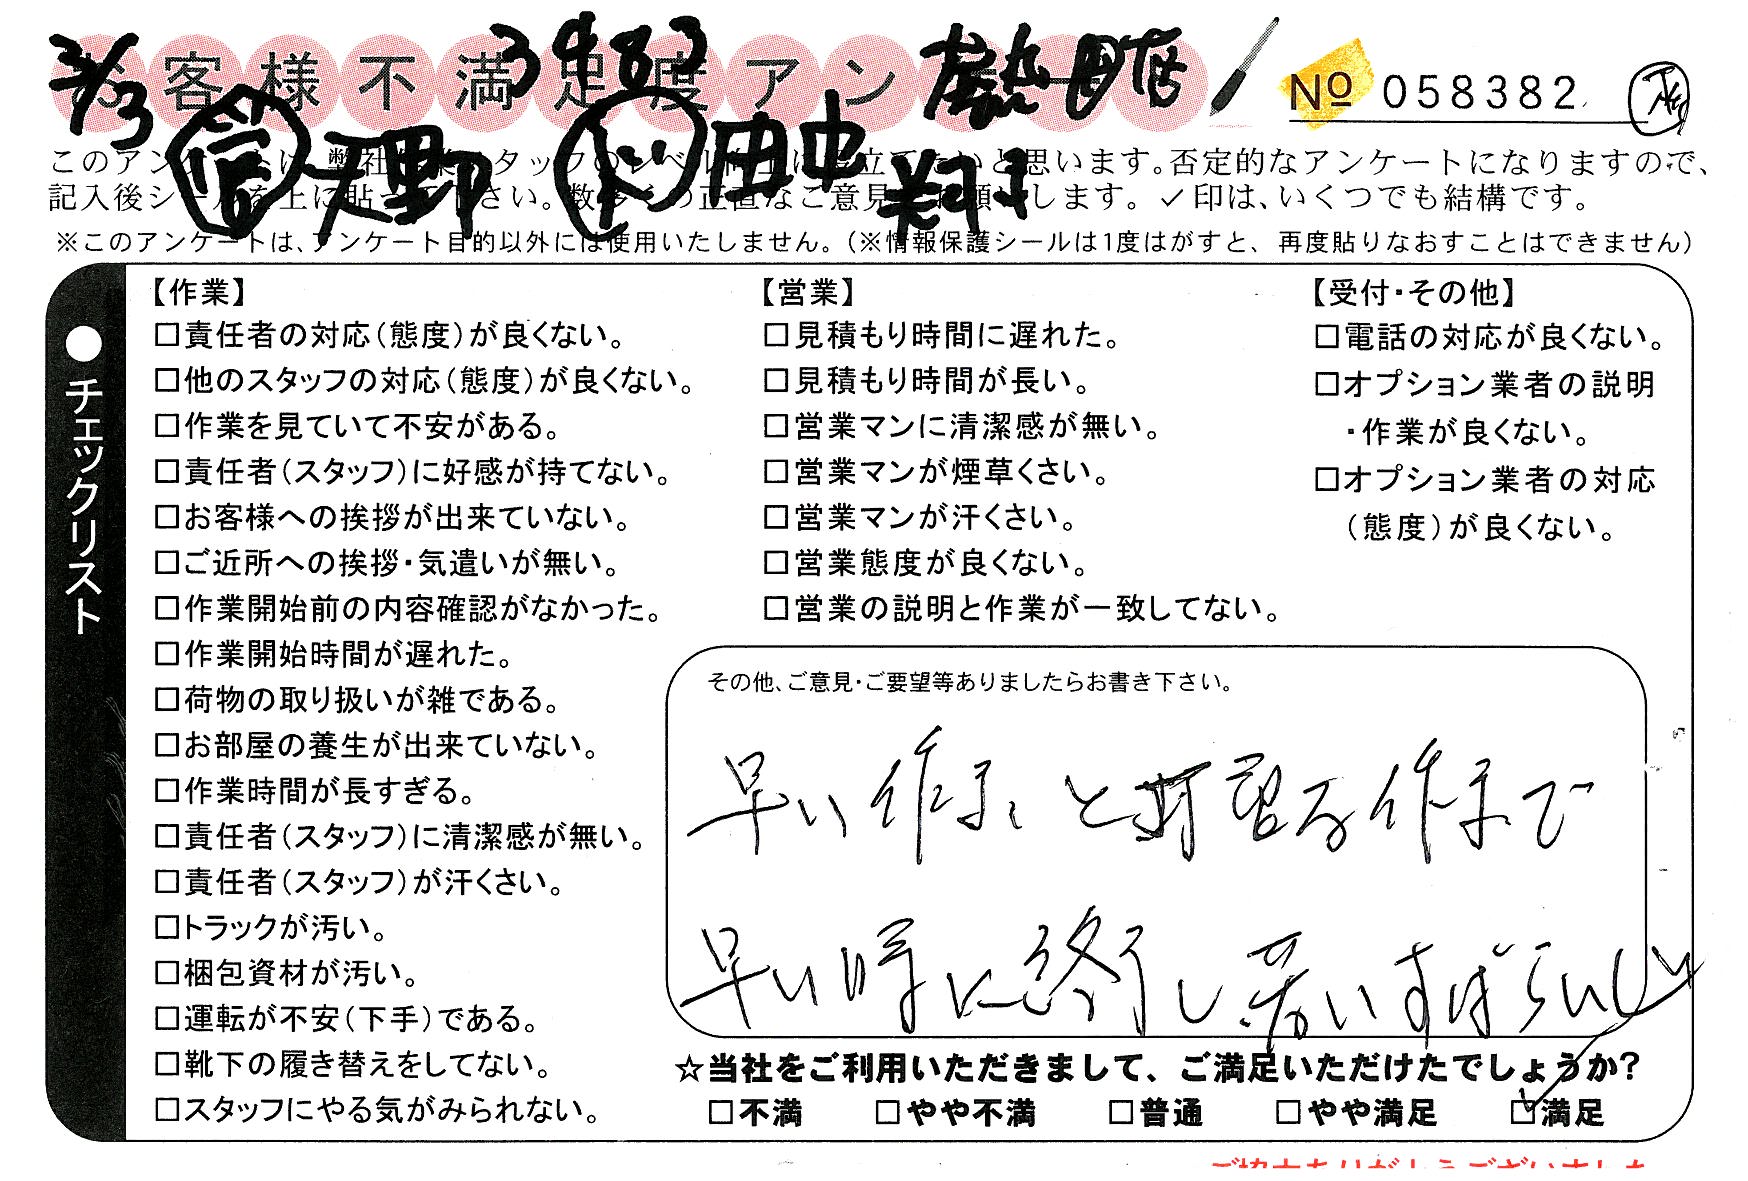 3/13 3983
お客様不満足度アン
№ 058382
営 天野 ド 田中
このアンケートは、弊社 スタッフのレベル向上に役立てたいと思います。否定的なアンケートになりますので、
記入後シールを上に貼って下さい。数多くの正直なご意見をお願いします。✓印は、いくつでも結構です。
※このアンケートは、アンケート目的以外には使用いたしません。（※情報保護シールは1度はがすと、再度貼りなおすことはできません）
●チェックリスト
【作業】
□責任者の対応（態度）が良くない。
□他のスタッフの対応（態度）が良くない。
□作業を見ていて不安がある。
□責任者（スタッフ）に好感が持てない。
□お客様への挨拶が出来ていない。
□ご近所への挨拶・気遣いが無い。
□作業開始前の内容確認がなかった。
□作業開始時間が遅れた。
□荷物の取り扱いが雑である。
□お部屋の養生が出来ていない。
□作業時間が長すぎる。
□責任者（スタッフ）に清潔感が無い。
□責任者（スタッフ）が汗くさい。
□トラックが汚い。
□梱包資材が汚い。
□運転が不安（下手）である。
□靴下の履き替えをしてない。
□スタッフにやる気がみられない。
【営業】
□見積もり時間に遅れた。
□見積もり時間が長い。
□営業マンに清潔感が無い。
□営業マンが煙草くさい。
□営業マンが汗くさい。
□営業態度が良くない。
□営業の説明と作業が一致してない。
【受付・その他】
□電話の対応が良くない。
□オプション業者の説明
・作業が良くない。
□オプション業者の対応
（態度）が良くない。
その他、ご意見・ご要望等ありましたらお書き下さい。
早い作業 と 作業で
早い時に終了し すばらしい
☆当社をご利用いただきまして、ご満足いただけたでしょうか？
□不満 □やや不満 □普通 □やや満足 ☑満足
ご協力ありがとうございました